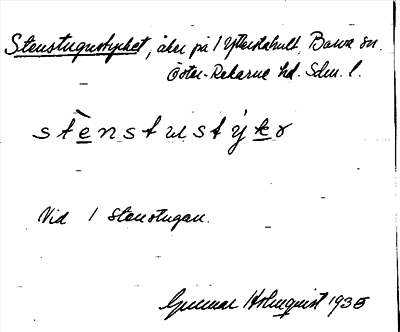 Stenstugustycket, åker på 1 Ytterstahult, Barva sn.
Öster-Rekarne hd. Sdm. l.
stènstustýkr
Vid 1 Stenstugan.
Gunnar Holmquist 1935